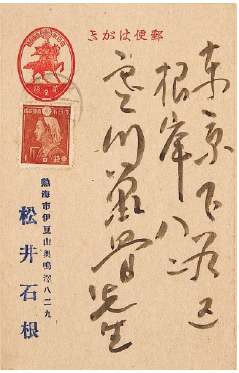 郵便はがき
東京下谷区
根岸八二
寒川鼠骨先生
熱海市伊豆山奥鳴澤八二九
松井石根